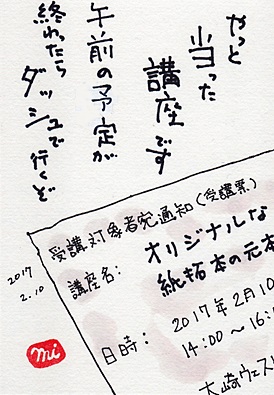 やっと
当った
講座です
午前の予定が
終わったら
ダッシュで行くぞ
受講対象者宛通知(受講票)
講座名: オリジナルな
紙拓本の元本
日時: 2017年2月10
14:00～16:
大崎ウェスト
2017
2.10
mi